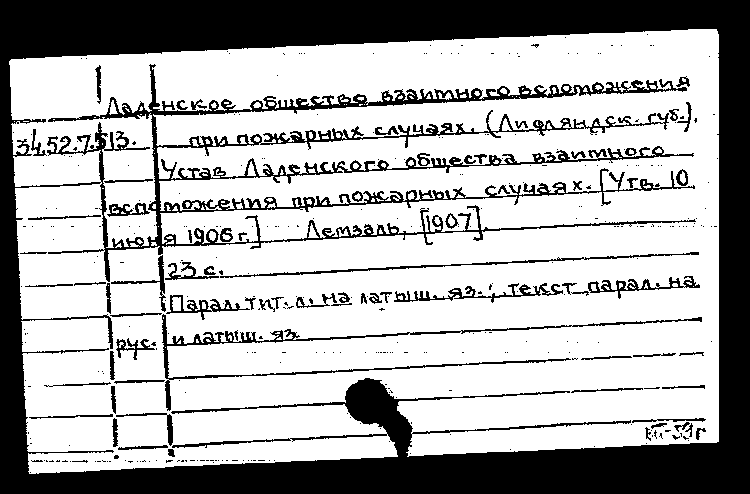 Ладенское общество взаимного вспоможения
34.52.7.513. при пожарных случаях. (Лифляндск. губ.).
Устав Ладенского общества взаимного
вспоможения при пожарных случаях. [Утв. 10
июня 1906 г.] Лемзаль, [1907].
23 с.
Парал. тит. л. на латыш. яз.; текст парал. на
рус. и латыш. яз.
VII-59 г